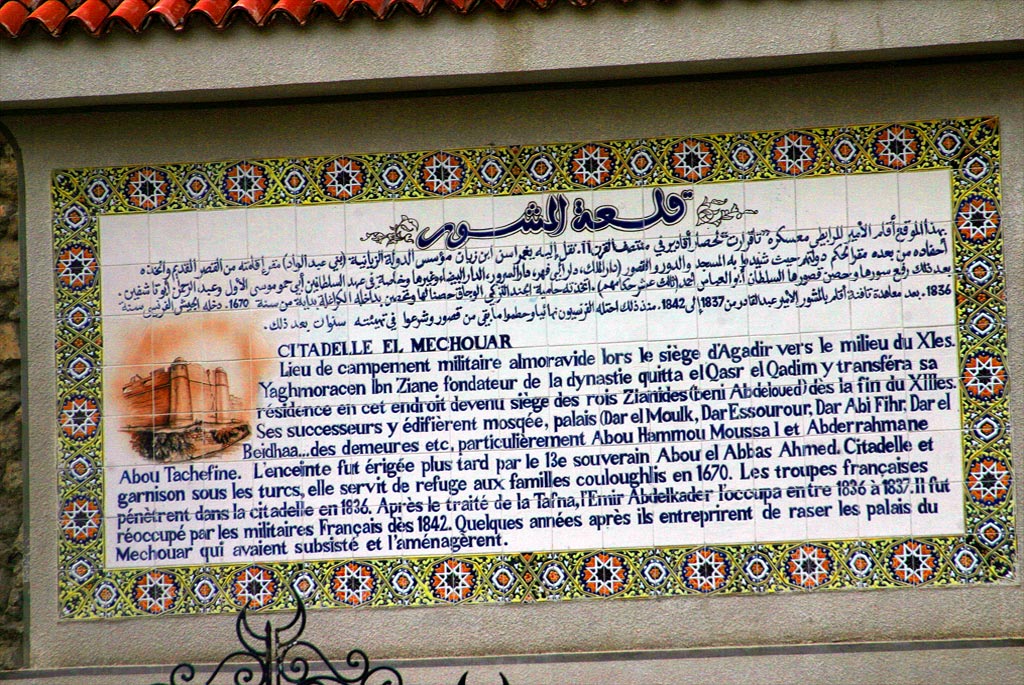 قلعة المشور
بهذا الموقع أقام الأمير المرابطي معسكره "تاقرارت" لحصار أقادير في منتصف القرن 11. نقل إليه يغمراسن ابن زيان مؤسس الدولة الزيانية (بني عبد الواد) مقر إقامته من القصر القديم واتخذه
أحفاده من بعده مقرا لحكم دولتهم حيث شيدوا به المسجد والدور و القصور (دار الملك، دار أبي فهر، دار السرور، الدار البيضاء وغيرها وخاصة في عهد السلطانين أبي حمو موسى الأول وعبد الرحمن أبو تاشفين.
بعد ذلك رفع سورها وحصن قصورها السلطان أبو العباس أحمد
من سنة 1670. دخله الجيش الفرنسي سنة
1836. بعد معاهدة تافنة أقام بالمشور الأمير عبد القادر من 1837 إلى 1842. منذ ذلك احتله الفرنسيون نهائيا وحطموا ما بقي من قصور وشرعوا في تهيئته سنوات بعد ذلك.
CITADELLE EL MECHOUAR
Lieu de campement militaire almoravide lors le siège d'Agadir vers le milieu du XIes.
Yaghmoracen Ibn Ziane fondateur de la dynastie quitta el Qasr el Qadim y transféra sa
résidence en cet endroit devenu siège des rois Zianides (beni Abdeloued) dès la fin du XIIIes.
Ses successeurs y édifièrent mosqée, palais (Dar el Moulk, Dar Essourour, Dar Abi Fihr, Dar el
Beidhaa...des demeures etc, particulièrement Abou Hammou Moussa I et Abderrahmane
Abou Tachefine. L'enceinte fut érigée plus tard par le 13e souverain Abou el Abbas Ahmed. Citadelle et
garnison sous les turcs, elle servit de refuge aux familles couloughlis en 1670. Les troupes françaises
pénètrent dans la citadelle en 1836. Après le traité de la Tafna, l'Emir Abdelkader l'occupa entre 1836 à 1837. Il fut
réoccupé par les militaires Français dès 1842. Quelques années après ils entreprirent de raser les palais du
Mechouar qui avaient subsisté et l'aménagèrent.